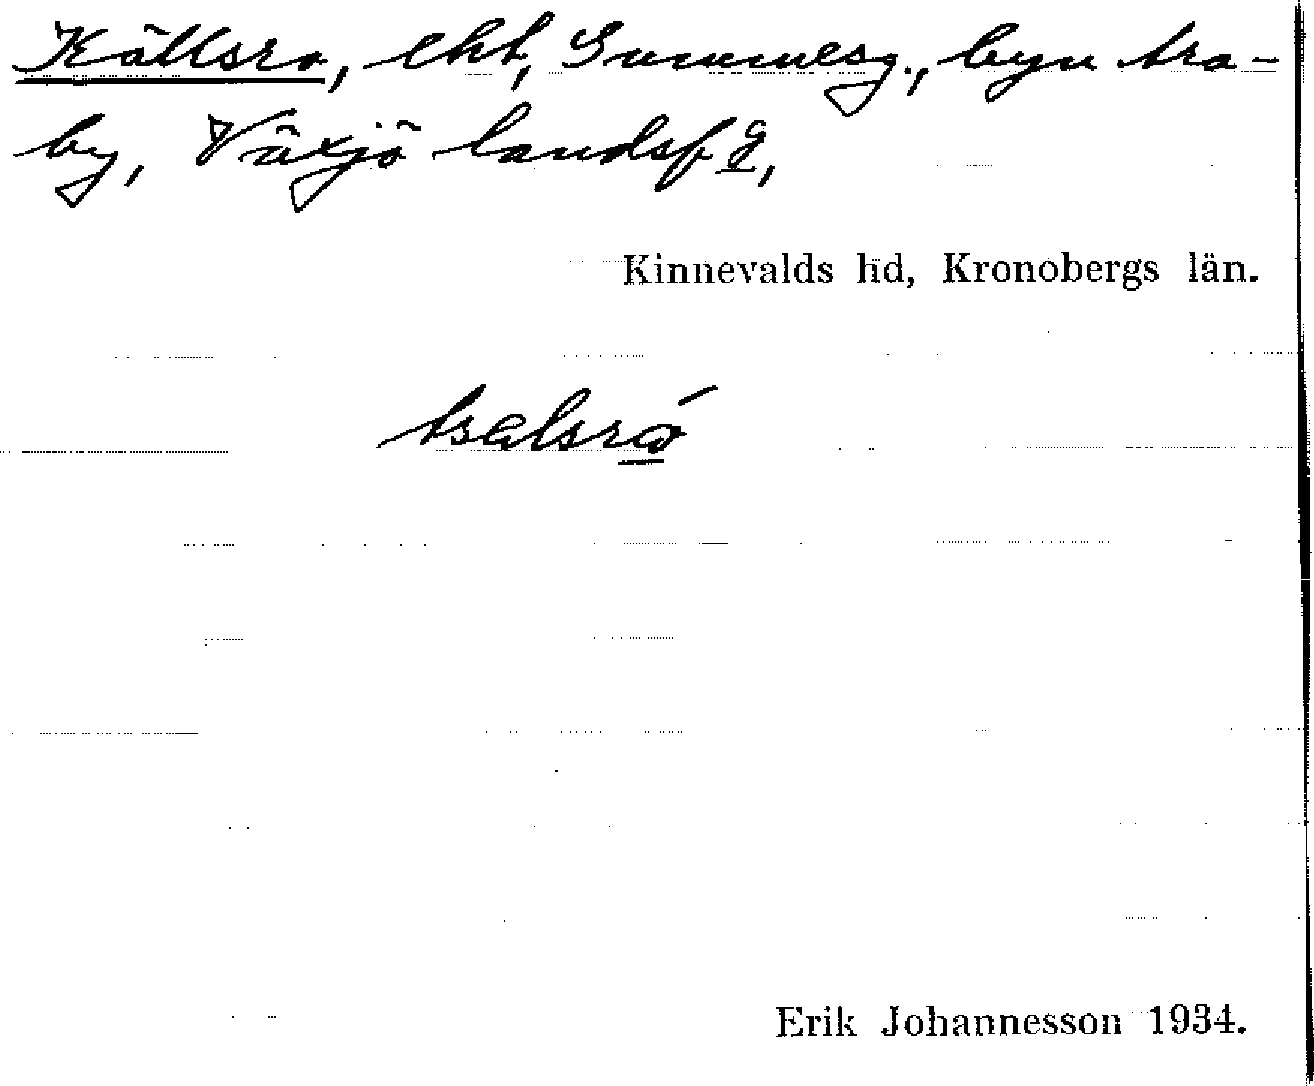 Källsro, lht, Gummesg., byn Ara-
by, Växjö landsf g,
Kinnevalds hd, Kronobergs län.
Erik Johannesson 1934.